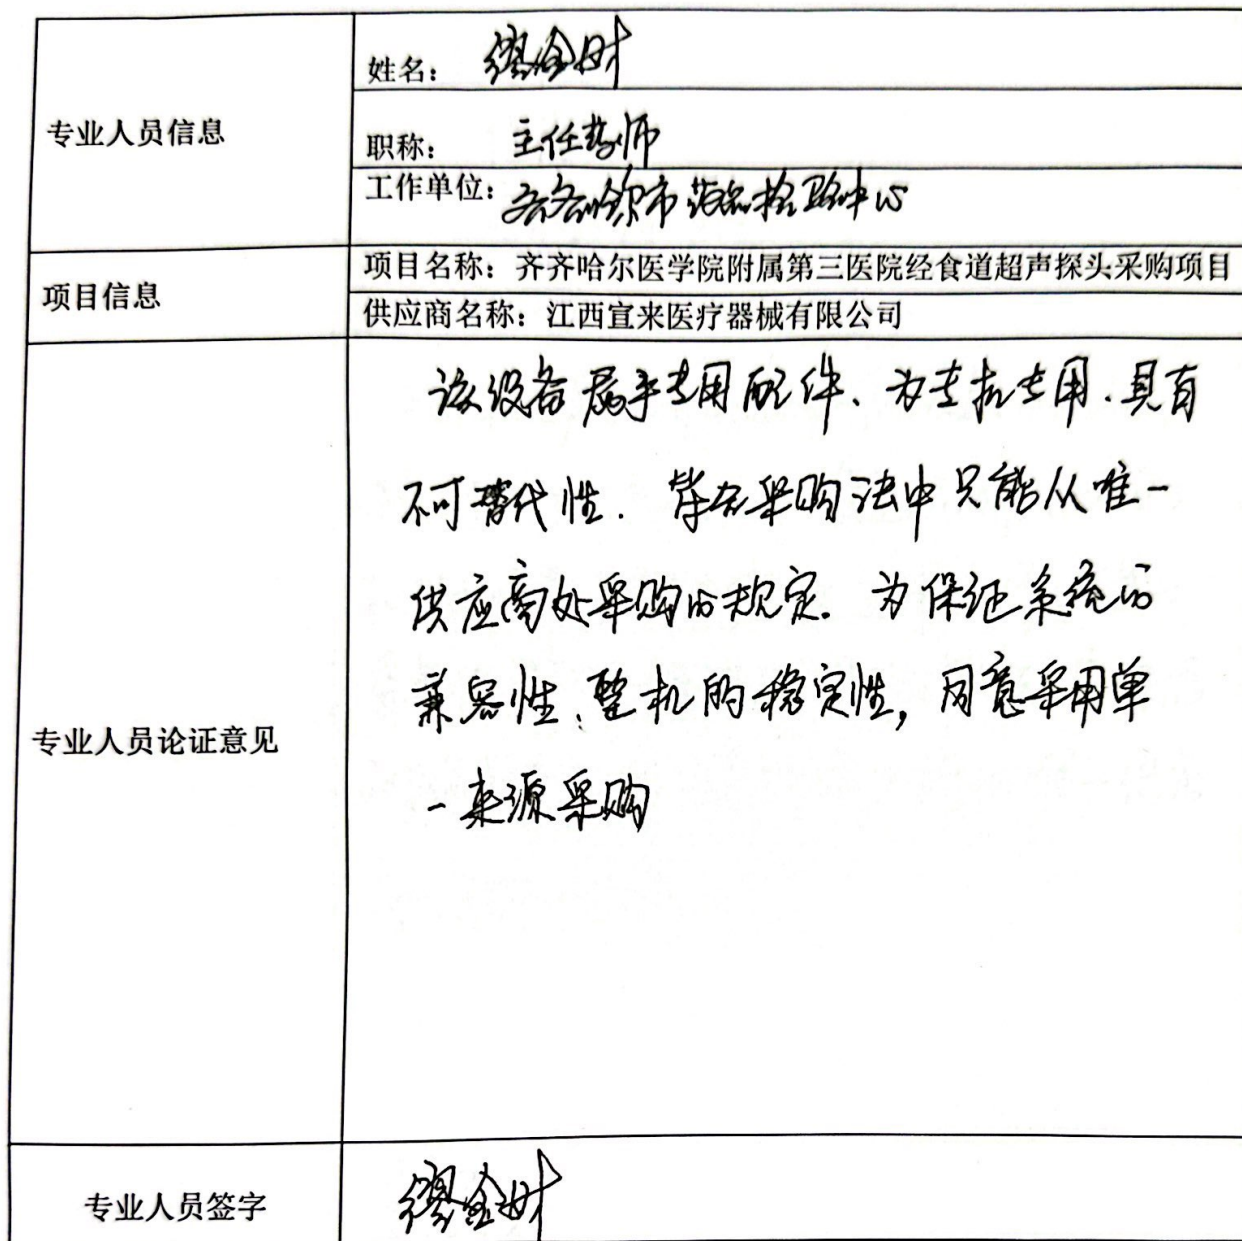 专业人员信息
姓名：缪金财
职称：主任药师
工作单位：齐齐哈尔市药品检验中心
项目信息
项目名称：齐齐哈尔医学院附属第三医院经食道超声探头采购项目
供应商名称：江西宣来医疗器械有限公司
专业人员论证意见
该设备属于专用配件、为专机专用.具有
不可替代性. 符合采购法中只能从唯一
供应商处采购的规定. 为保证系统的
兼容性、整机的稳定性，同意采用单
一来源采购
专业人员签字
缪金财